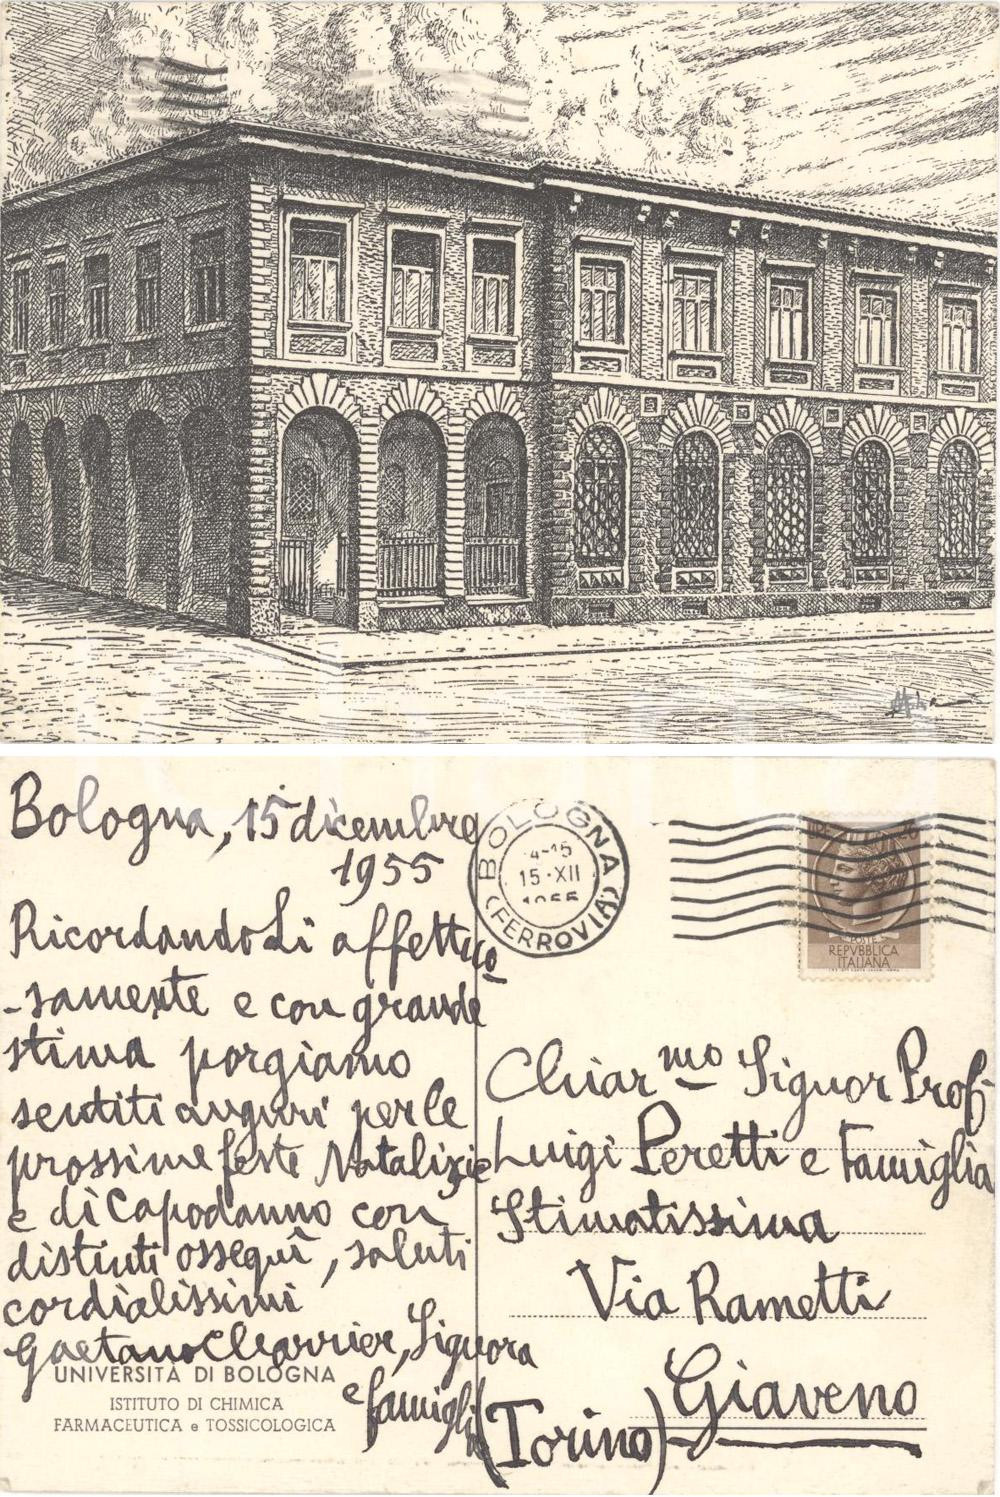 Bologna, 15 dicembre
1955
RicordandoLi affettuo
-samente e con grande
stima porgiamo
sentiti auguri per le
prossime feste Natalizie
e di Capodanno con
distinti ossequi, saluti
cordialissimi
Gaetano Charrier, Signora
e famiglia
UNIVERSITÀ DI BOLOGNA
ISTITUTO DI CHIMICA
FARMACEUTICA e TOSSICOLOGICA
BOLOGNA
15·XII
1955
(FERROVIA)
POSTE
REPVBBLICA
ITALIANA
Chiar mo Signor Prof.
Luigi Peretti e Famiglia
Stimatissima
Via Rametti
Giaveno
(Torino)